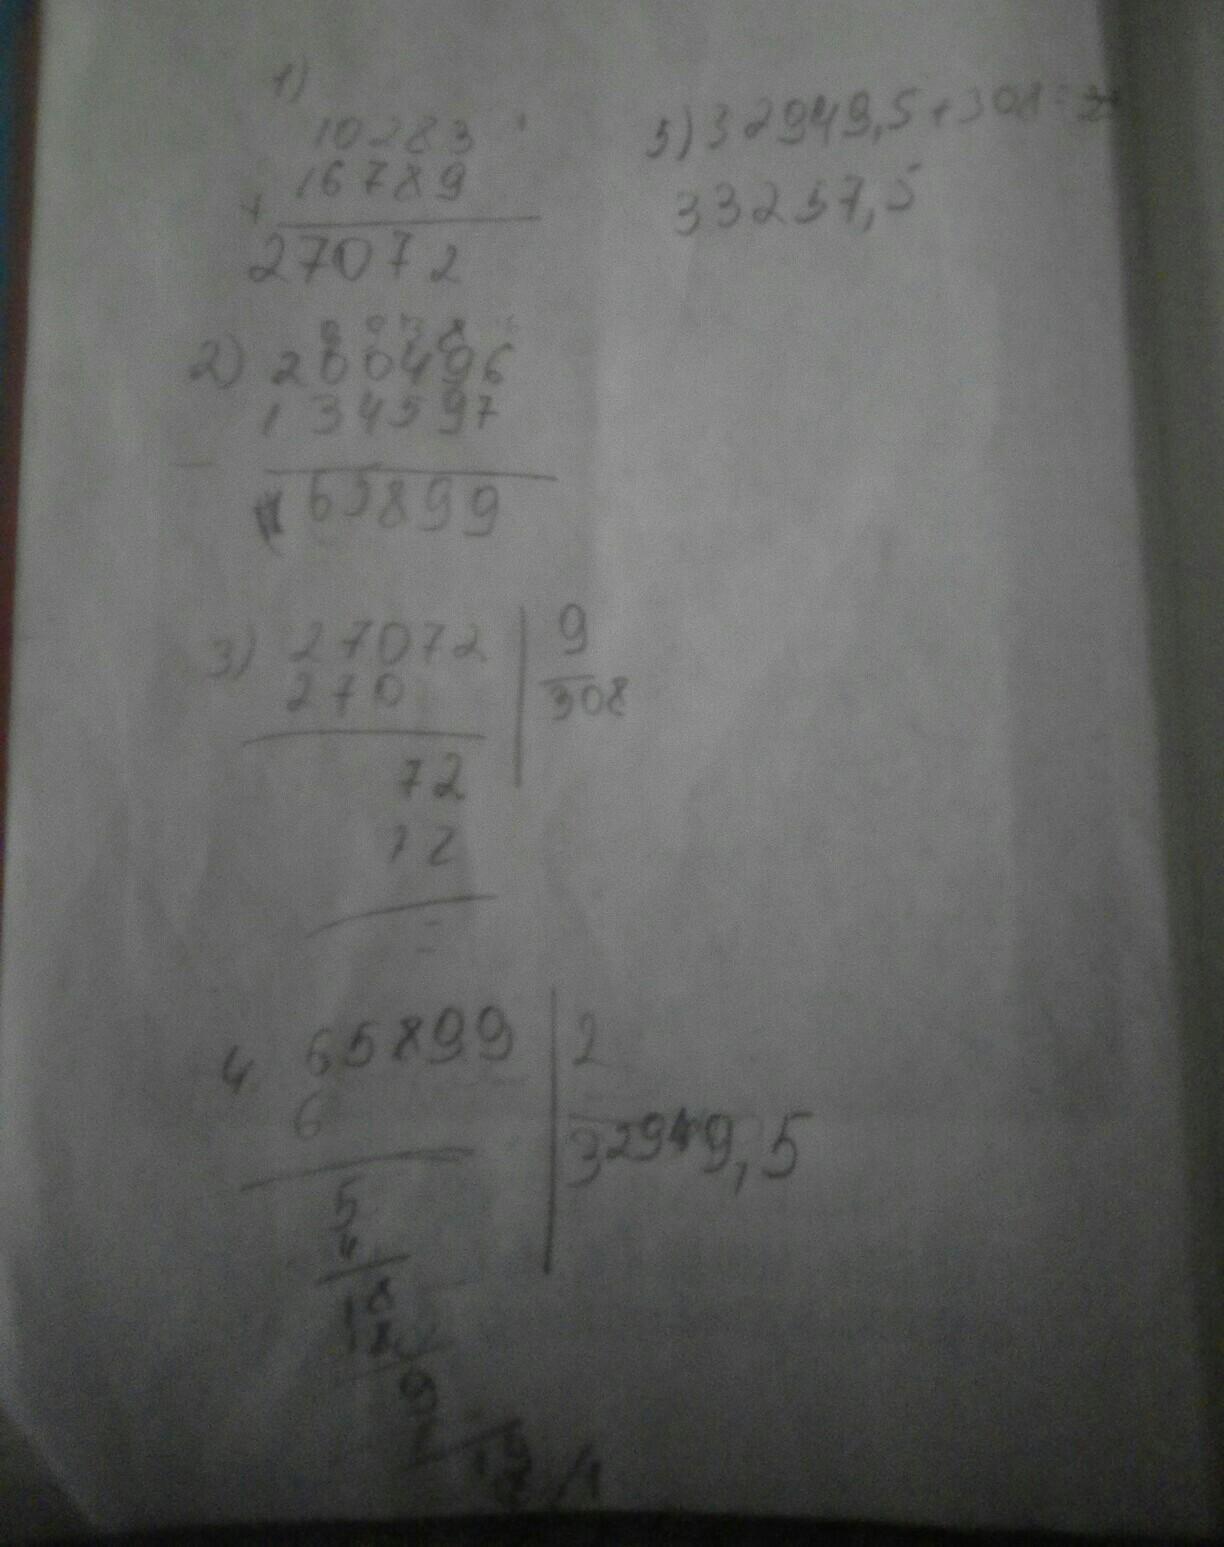 1)
10283
16789
+
27072
2) 200496
134597
-
65899
3) 27072 9
270 308
72
72
=
4 65899 2
6 32949,5
5
4
18
18
9
8
19
5) 32949,5+308=
33257,5